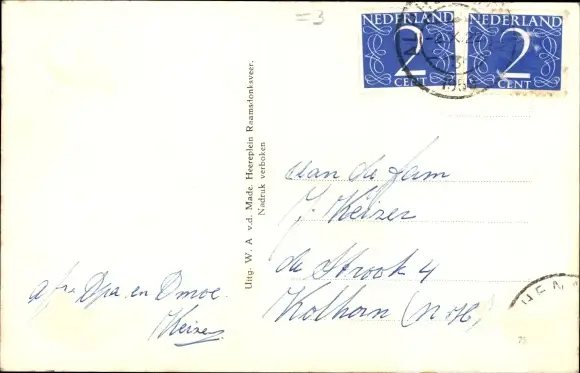 =3
NEDERLAND
2
CENT
NEDERLAND
2
CENT
Uitg. W. A v.d. Made. Heereplein Raamsdonksveer.
Nadruk verboken
aan de fam
J. Keizer
de Strook 4
Kolhorn (N-H)
afz. Opa en Omoe.
Keizer